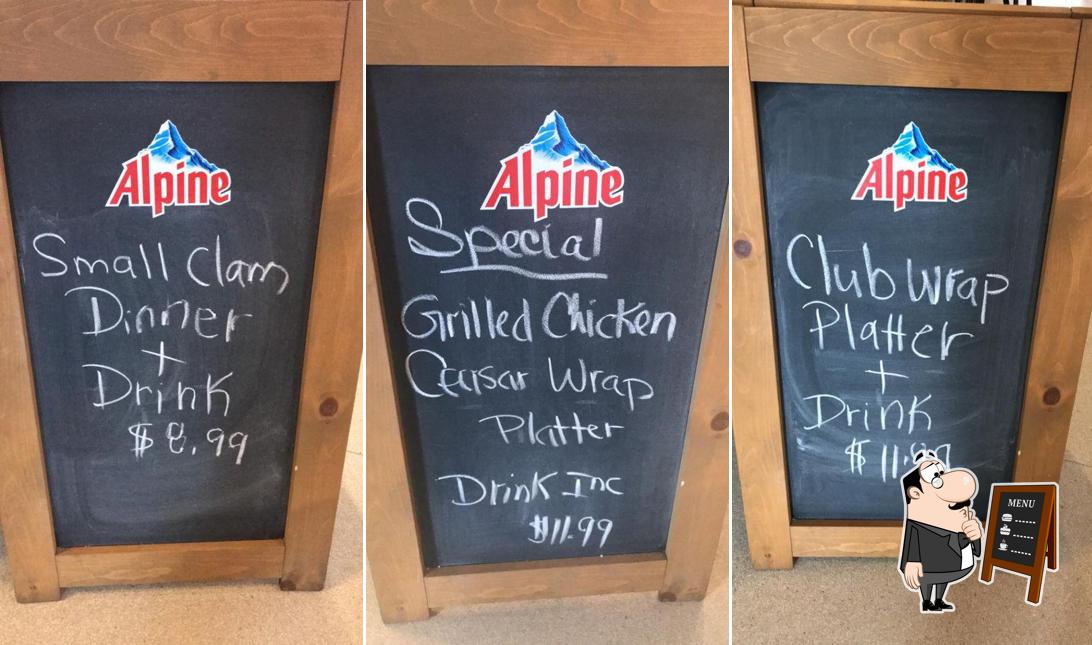 Alpine
Small Clam
Dinner
+
Drink
$ 8.99
Alpine
Special
Grilled Chicken
Ceasar Wrap
Platter
Drink Inc
$11.99
Alpine
Club Wrap
Platter
+
Drink
$ 11.99
MENU